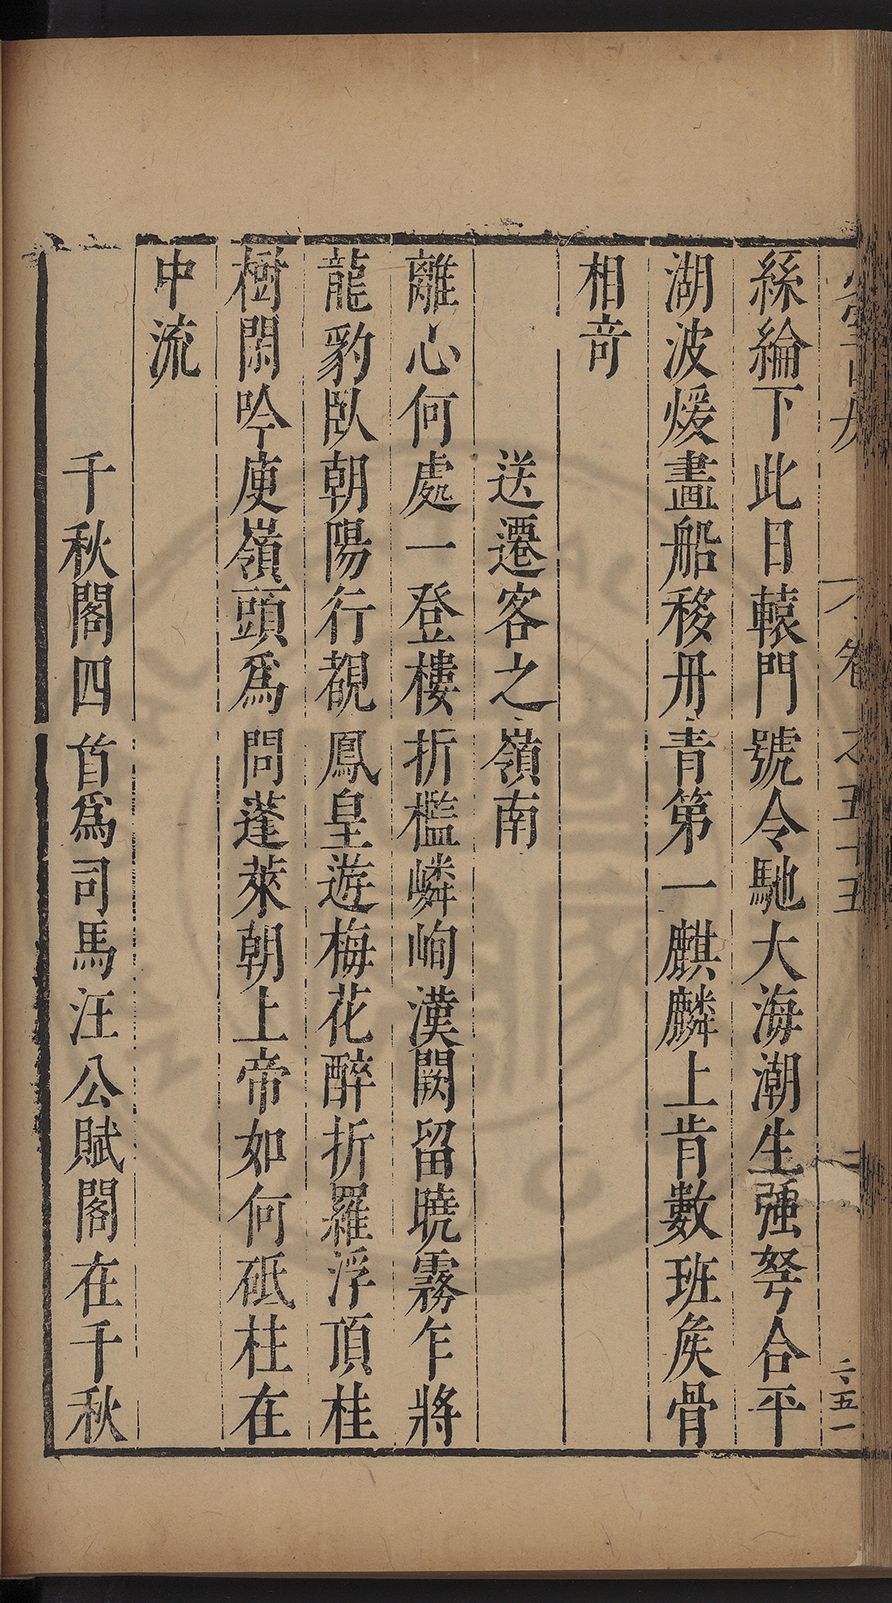 卷之五十五
二
二五一
絲綸下此日轅門號令馳大海潮生強弩合平
湖波煖畫船移丹青第一麒麟上肯數班矦骨
相竒
送遷客之嶺南
離心何處一登樓折檻嶙峋漢闕留曉霧乍將
龍豹臥朝陽行覩鳳皇遊梅花醉折羅浮頂桂
樹閑吟庾嶺頭爲問蓬萊朝上帝如何砥柱在
中流
千秋閣四首爲司馬汪公賦閣在千秋